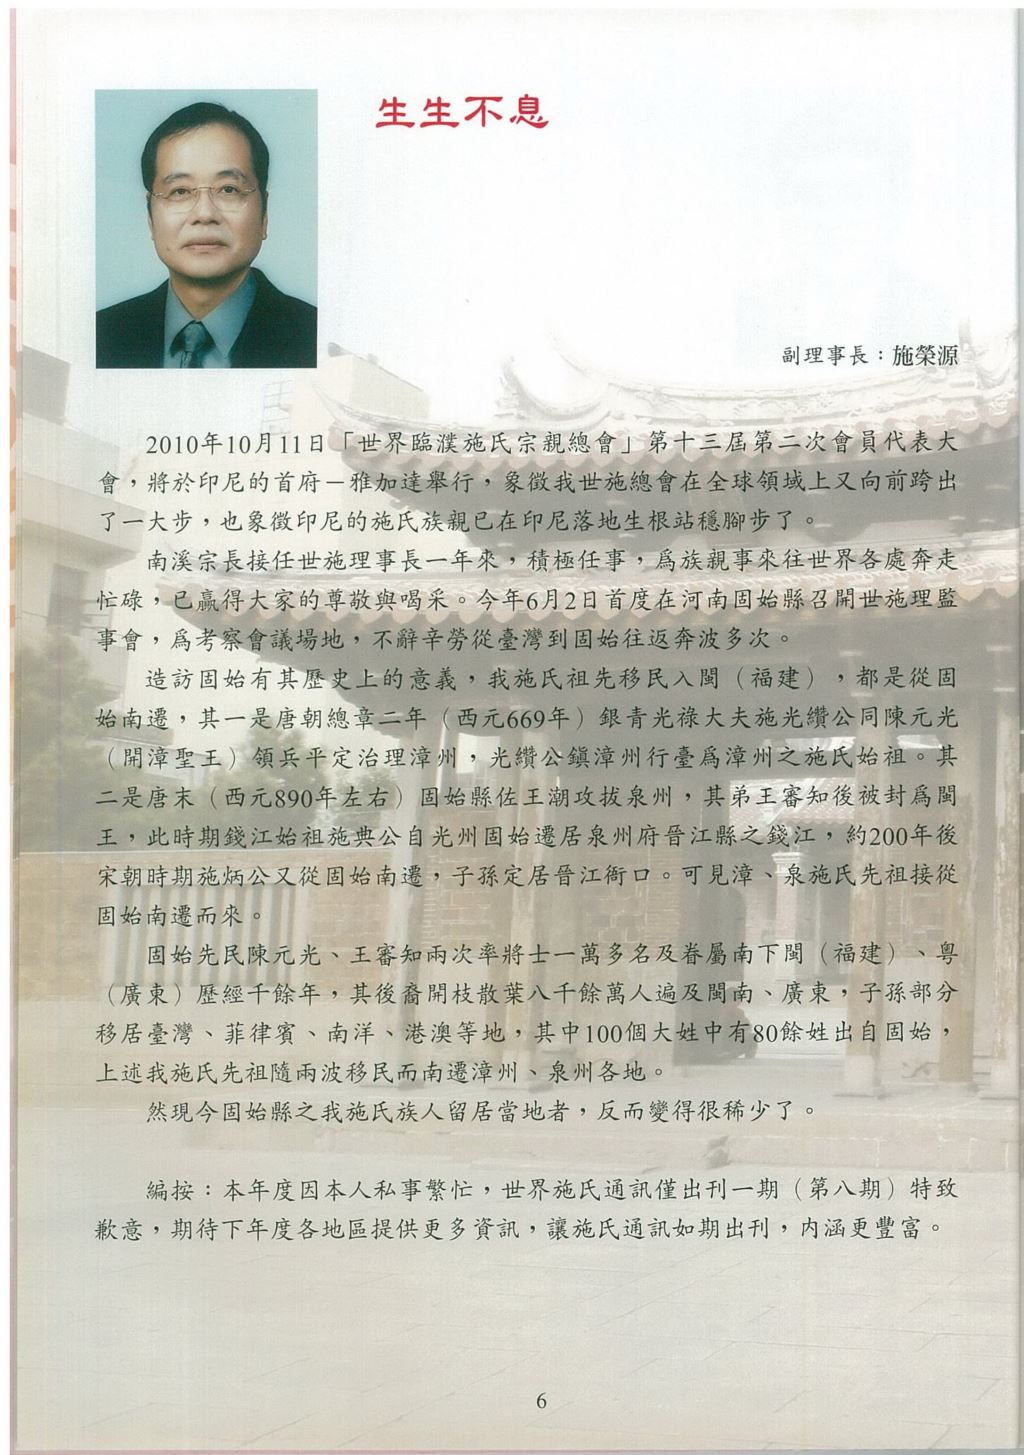 生生不息
副理事長：施榮源
2010年10月11日「世界臨濮施氏宗親總會」第十三屆第二次會員代表大
會，將於印尼的首府－雅加達舉行，象徵我世施總會在全球領域上又向前跨出
了一大步，也象徵印尼的施氏族親已在印尼落地生根站穩腳步了。
南溪宗長接任世施理事長一年來，積極任事，爲族親事來往世界各處奔走
忙碌，已贏得大家的尊敬與喝采。今年6月2日首度在河南固始縣召開世施理監
事會，爲考察會議場地，不辭辛勞從臺灣到固始往返奔波多次。
造訪固始有其歷史上的意義，我施氏祖先移民入閩（福建），都是從固
始南遷，其一是唐朝總章二年（西元669年）銀青光祿大夫施光纘公同陳元光
（開漳聖王）領兵平定治理漳州，光纘公鎮漳州行臺爲漳州之施氏始祖。其
二是唐末（西元890年左右）固始縣佐王潮攻拔泉州，其弟王審知後被封爲閩
王，此時期錢江始祖施典公自光州固始遷居泉州府晉江縣之錢江，約200年後
宋朝時期施炳公又從固始南遷，子孫定居晉江衙口。可見漳、泉施氏先祖接從
固始南遷而來。
固始先民陳元光、王審知兩次率將士一萬多名及眷屬南下閩（福建）、粵
（廣東）歷經千餘年，其後裔開枝散葉八千餘萬人遍及閩南、廣東，子孫部分
移居臺灣、菲律賓、南洋、港澳等地，其中100個大姓中有80餘姓出自固始，
上述我施氏先祖隨兩波移民而南遷漳州、泉州各地。
然現今固始縣之我施氏族人留居當地者，反而變得很稀少了。
編按：本年度因本人私事繁忙，世界施氏通訊僅出刊一期（第八期）特致
歉意，期待下年度各地區提供更多資訊，讓施氏通訊如期出刊，內涵更豐富。
6